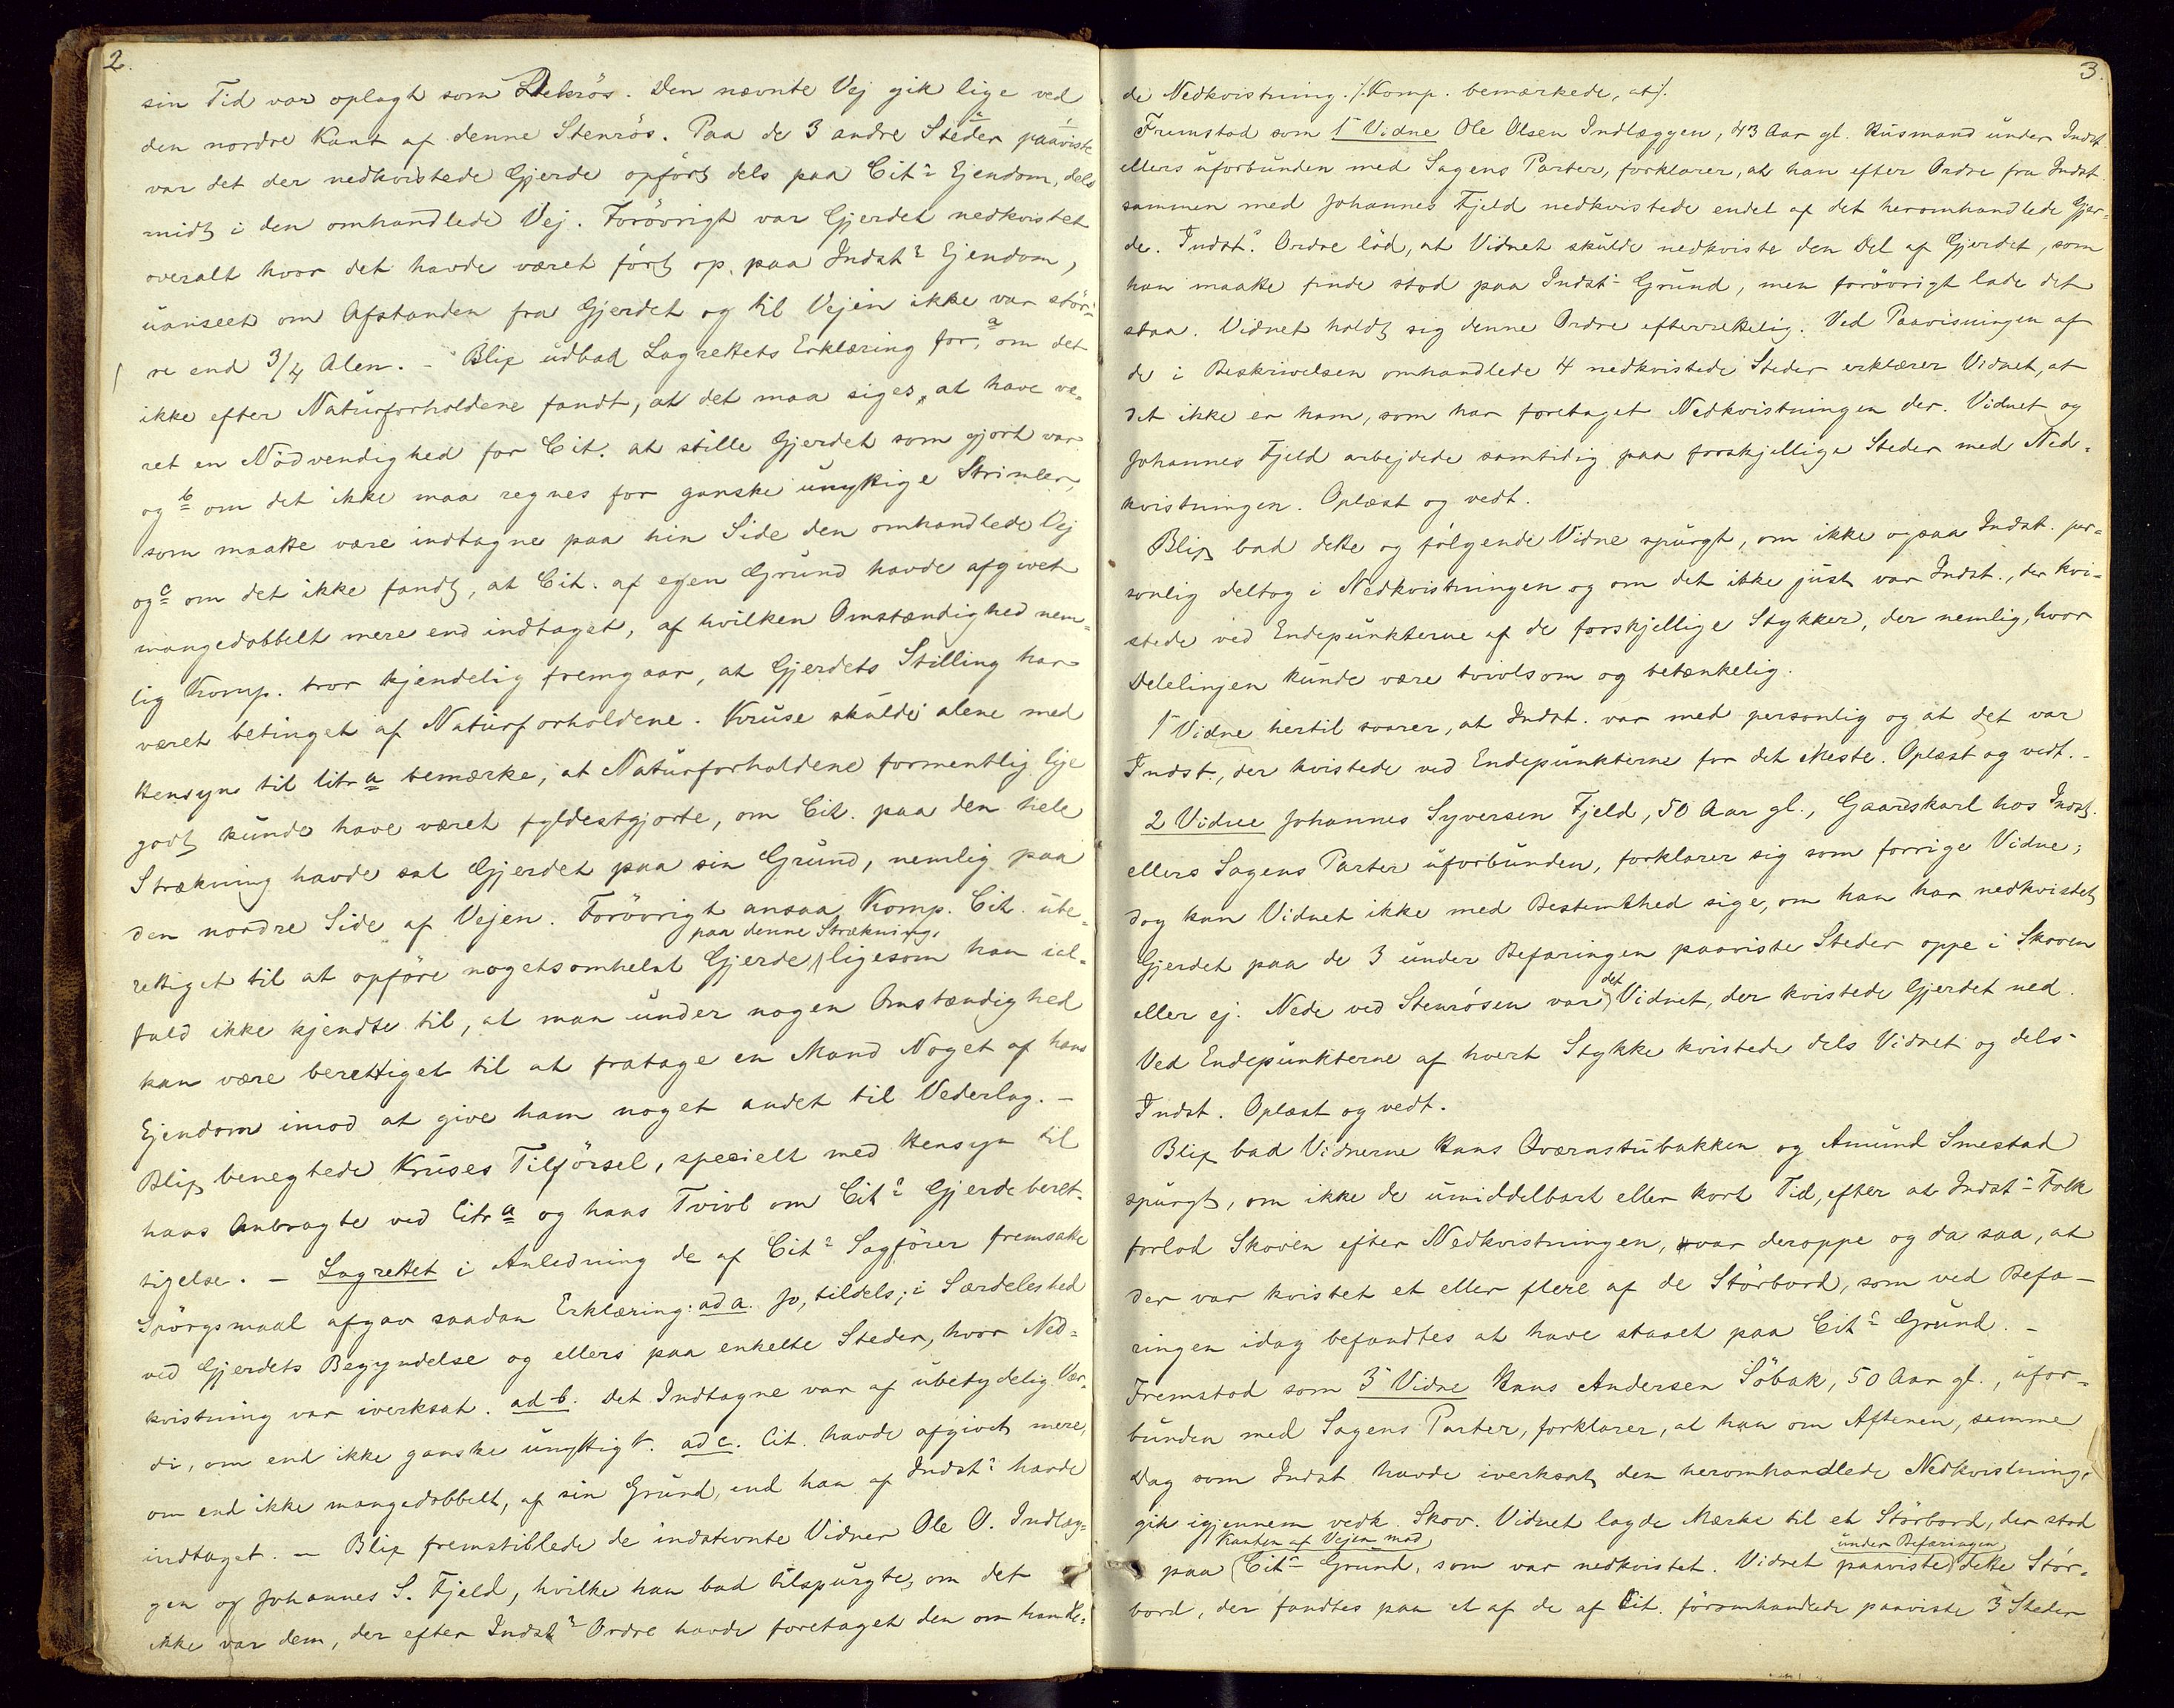 2.
sin Tid var oplagt som Stenrös. Den nævnte Vej gik lige ved
den nordre Kant af denne Stenrös. Paa de 3 andre Steder paaviste
var det der nedkvistede Gjerde opfört dels paa Citˢ Ejendom, dels
midt i den omhandlede Vej. Forövrigt var Gjerdet nedkvistet
overalt hvor det havde været fört op paa Indstˢ Ejendom,
uanseet om Afstanden fra Gjerdet og til Vejen ikke var stör-
re end 3/4 Alen. - Blix udbad Lagrettets Erklæring for, a om det
ikke efter Naturforholdene fandt, at det maa siges, at have væ-
ret en Nödvendighed for Cit. at stille Gjerdet som gjort var
og b om det ikke maa regnes for ganske unyttige Strimler,
som maatte være indtagne paa hin Side den omhandlede Vej
og c om det ikke fandt, at Cit. af egen Grund havde afgivet
mangedobbelt mere end indtaget, af hvilken Omstændighed nem-
lig Komp. tror kjendelig fremgaar, at Gjerdets Stilling har
været betinget af Naturforholdene. Kruse skulde alene med
Hensyn til litr a bemærke, at Naturforholdene formentlig lige
godt kunde have været fyldestgjorte, om Cit. paa den hele
Strækning havde sat Gjerdet paa sin Grund, nemlig paa
den nordre Side af Vejen. Forövrigt ansaa Komp. Cit. ube-
paa denne Strækning,
rettiget til at opföre nogetsomhelst Gjerde, ligesom han ial-
fald ikke kjendte til, at man under nogen Omstændighed
kan være berettiget til at fratage en Mand Noget af hans
Ejendom imod at give ham noget andet til Vederlag. -
Blix benegtede Kruses Tilförsel, specielt med Hensyn til
hans Anbragte ved litr a og hans Tvivl om Citˢ Gjerdeberet-
tigelse. - Lagrettet i Anledning de af Citˢ Sagförer fremsatte
Spörgsmaal afgav saadan Erklæring: ad a. Jo, tildels; i Særdeleshed
ved Gjerdets Begyndelse og ellers paa enkelte Steder, hvor Ned-
kvistning var iverksat. ad b. Det Indtagne var af ubetydelig Vær-
di, om end ikke ganske unyttigt. ad c. Cit. havde afgivet mere,
om end ikke mangedobbelt, af sin Grund, end han af Indstˢ havde
indtaget. - Blix fremstillede de indstevnte Vidner Ole O. Indlæg-
gen og Johannes S. Fjeld, hvilke han bad tilspurgte, om det
ikke var dem, der efter Indstˢ Ordre havde foretaget den omhandle-
3.
de Nedkvistning. /. Komp. bemærkede, at /.
Fremstod som 1ᵗ Vidne Ole Olsen Indlæggen, 43 Aar gl. Husmand under Indst.
ellers uforbunden med Sagens Parter, forklarer, at han efter Ordre fra Indst.
sammen med Johannes Fjeld nedkvistede endel af det heromhandlede Gjer-
de. Indstˢ. Ordre löd, at Vidnet skulde nedkviste den Del af Gjerdet, som
han maatte finde stod paa Indstˢ Grund, men forövrigt lade det
staa. Vidnet holdt sig denne Ordre efterrettelig. Ved Paavisningen af
de i Beskrivelsen omhandlede 4 nedkvistede Steder erklærer Vidnet, at
det ikke er ham, som har foretaget Nedkvistningen der. Vidnet og
Johannes Fjeld arbejdede samtidig paa forskjellige Steder med Ned-
kvistningen. Oplæst og vedt.
Blix bad dette og fölgende Vidne spurgt, om ikke ogsaa Indst. per-
sonlig deltog i Nedkvistningen og om det ikke just var Indst., der kvi-
stede ved Endepunkterne af de forskjellige Stykker, der nemlig, hvor
Delelinjen kunde være tvivlsom og betænkelig.
1ᵗ Vidne hertil svarer, at Indst. var med personlig og at det var
Indst., der kvistede ved Endepunkterne for det Meste. Oplæst og vedt. -
2 Vidne Johannes Syversen Fjeld, 50 Aar gl., Gaardskarl hos Indst.
ellers Sagens Parter uforbunden, forklarer sig som forrige Vidne;
dog kan Vidnet ikke med Bestemthed sige, om han har nedkvistet
Gjerdet paa de 3 under Befaringen paaviste Steder oppe i Skoven
det
eller ej. Nede ved Stenrösen var Vidnet, der kvistede Gjerdet ned.
Ved Endepunkterne af hvert Stykke kvistede dels Vidnet og dels
Indst. Oplæst og vedt.
Blix bad Vidnerne Hans Qværnstubakken og Amund Smestad
spurgt, om ikke de umiddelbart eller kort Tid, efter at Indstˢ Folk
forlod Skoven efter Nedkvistningen, var deroppe og da saa, at
der var kvistet et eller flere af de Störbord, som ved Befa-
ringen idag befandtes at have staaet paa Citˢ Grund. -
Fremstod som 3ᵈ Vidne Hans Andersen Söbak, 50 Aar gl., ufor-
bunden med Sagens Parter, forklarer, at han om Aftenen, samme
Dag som Indst. havde iverksat den heromhandlede Nedkvistning,
gik igjennem vedk. Skov. Vidnet lagde Mærke til et Störbord, der stod
Kanten af Vejen mod
under Befaringen
paa Citˢ Grund, som var nedkvistet. Vidnet paaviste dette Stör-
bord, der fandtes paa et af de af Cit. föromhandlede paaviste 3 Steder